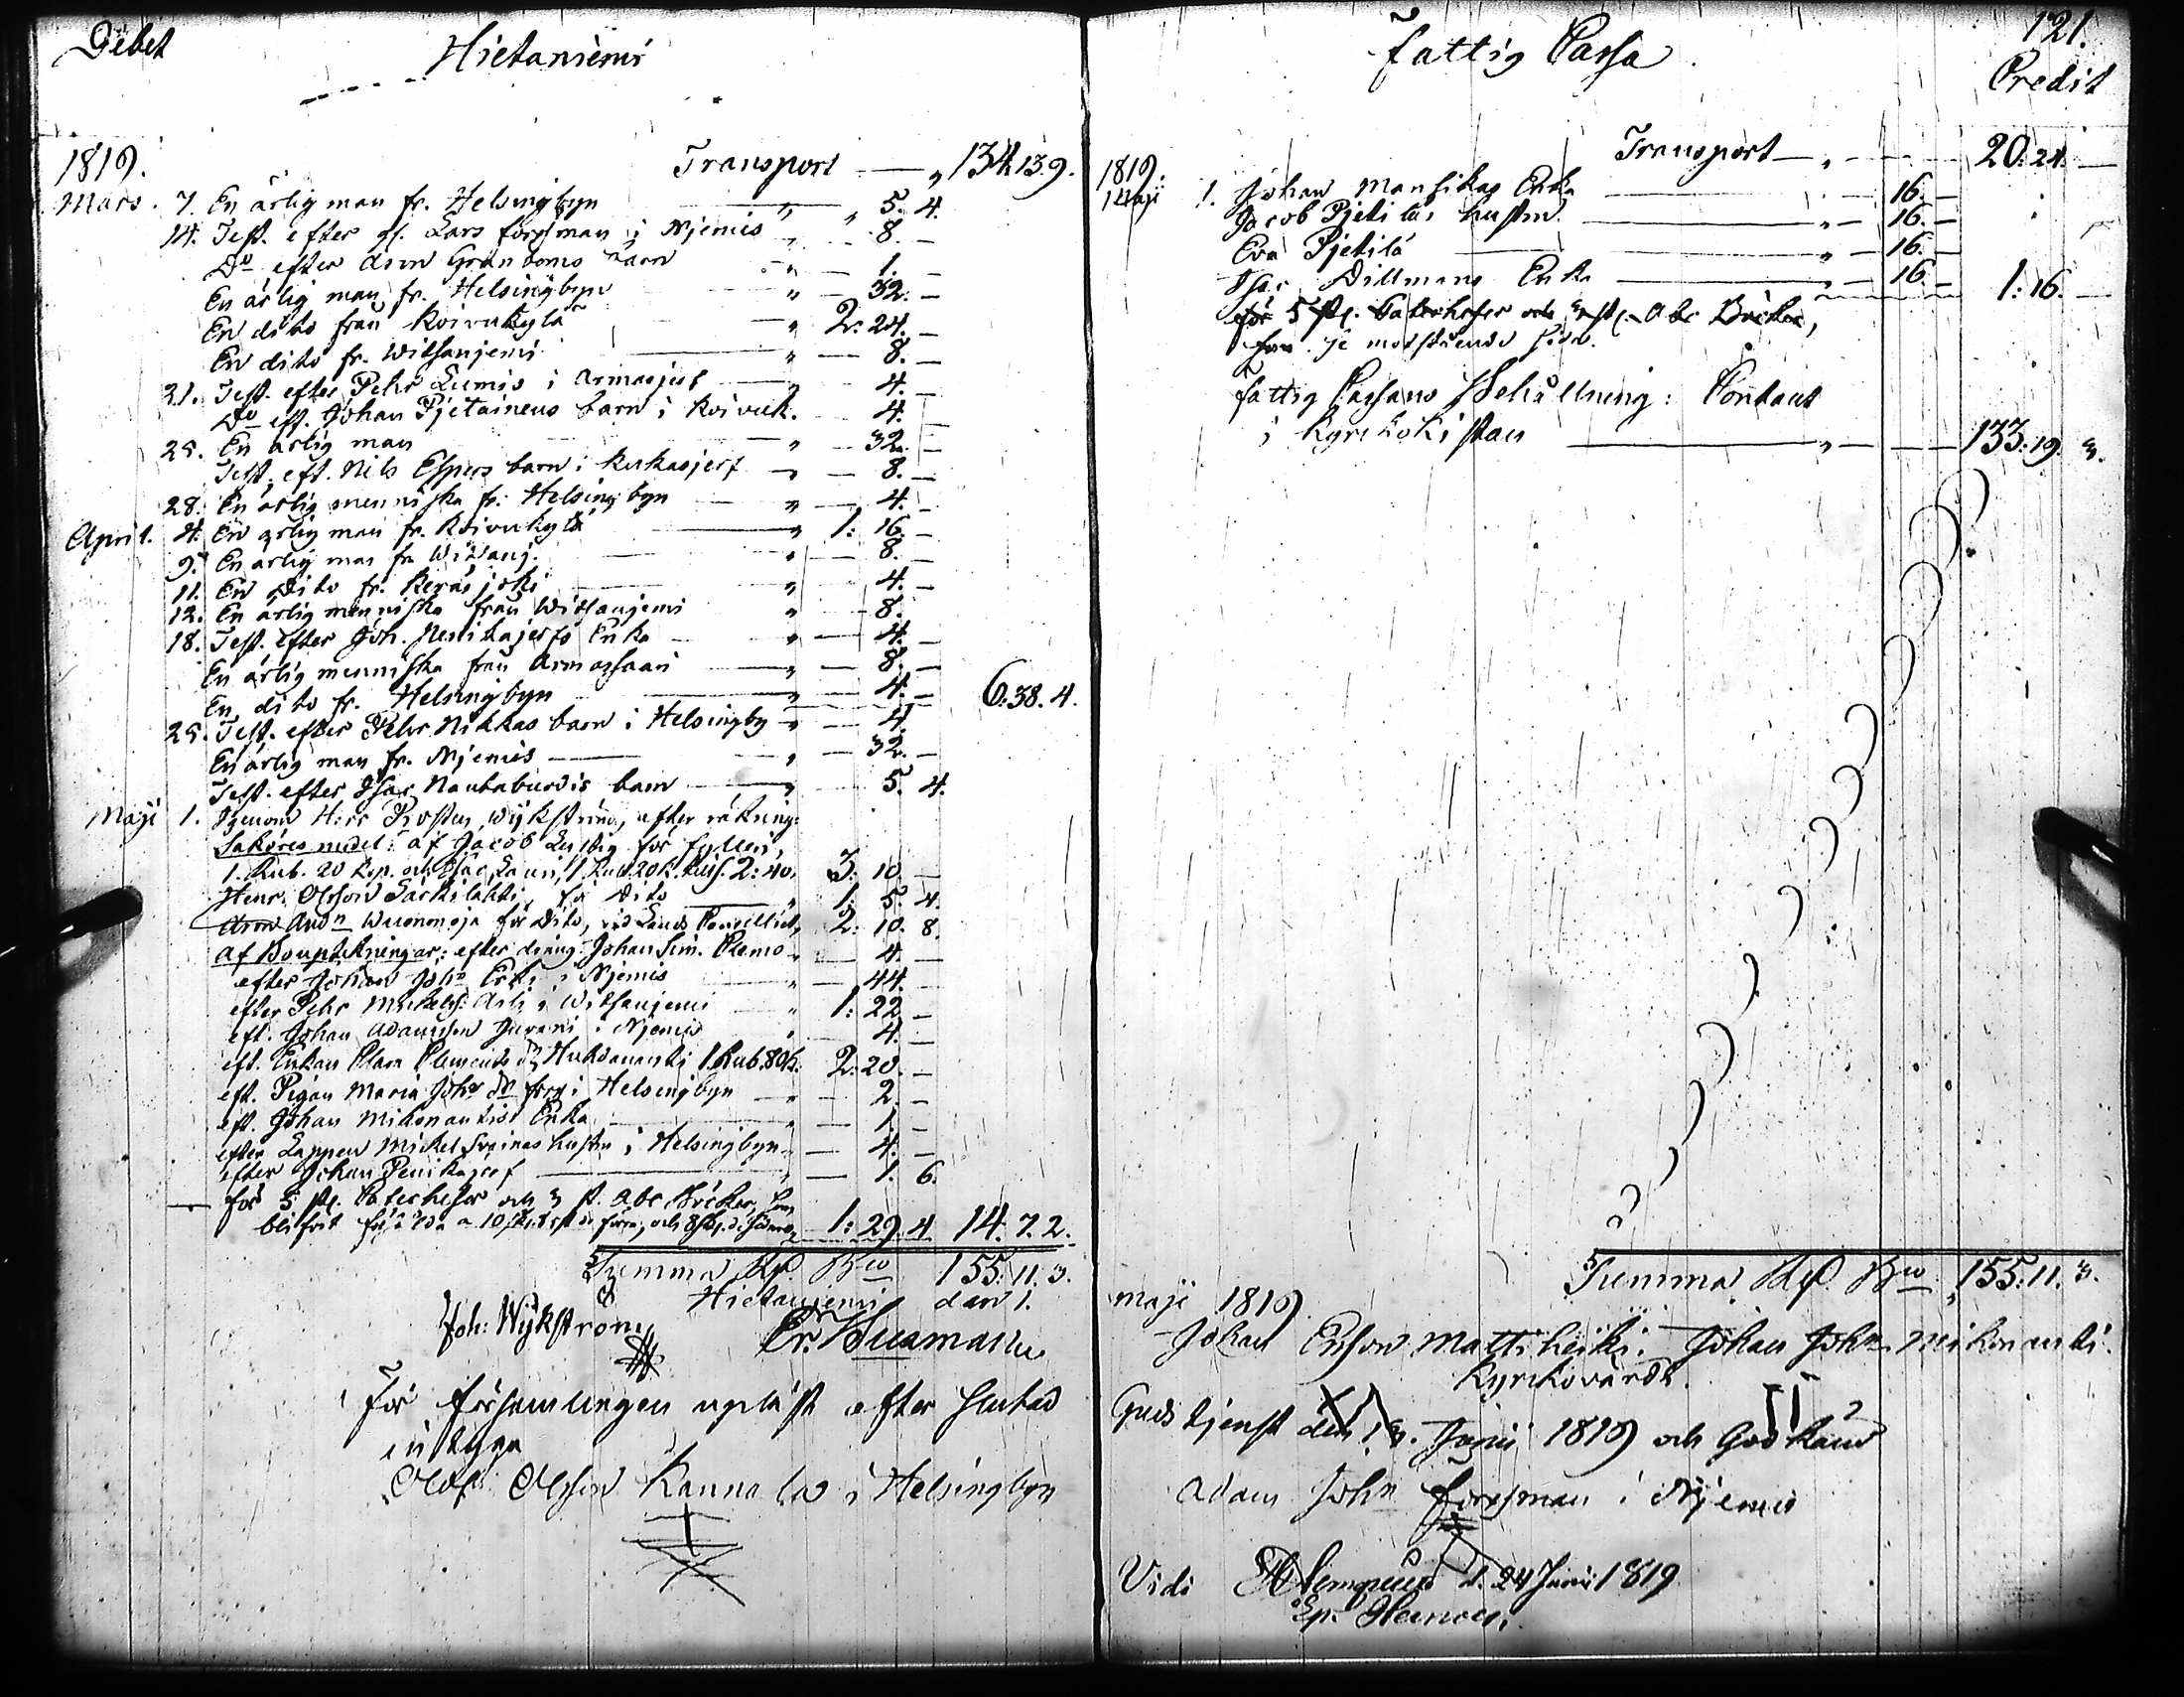 Debet Hietaniemi
1819. Transport — „ 134. 13. 9.
Mars. 7. En ärlig man fr. Helsingbyn „ „ 5. 4.
14. Test. efter gl. Lars Forssman i Njemis „ 8. —
Do efter Aron Grandoms barn „ — 1. —
En ärlig man fr. Helsingbyn „ — 32. —
En dito från Koivukylä „ 2: 24. —
En dito fr. Witsanjemi „ — 8. —
21. Test. efter Pehr Lumis i Armasjerf „ 4. —
Do eft. Johan Pjetäinens barn i Koivuk. 4. —
25. En ärlig man „ — 32. —
Test. eft. Nils Espers barn i Kukasjerf „ — 8. —
28. En ärlig menniska fr. Helsingbyn „ — 4. —
April. 4. En ärlig man fr. Koivukylä „ 1: 16. —
9. En ärlig man fr. Witsanj. „ — 8. —
11. En Dito fr. Keräsjoki „ 4. —
12. En ärlig menniska från Witsanjemi „ — 8. —
18. Test. efter Joh. Penikajerfs Enka „ — 4. —
En ärlig menniska från Armassaari „ — 8. —
En dito fr. Helsingbyn „ — 4. — 6. 38. 4.
25. Test. efter Pehr Nikkas barn i Helsingby „ — 4.
En ärlig man fr. Njemis „ — 32. —
Test. efter Isac Nautaburdis barn „ 5. 4.
Maji 1. Genom Herr Prosten Wijkström, efter räkning:
Saköres medel: af Jacob Lustig för fylleri,
1. Rub. 20 kop. och Isac Lauri, 1 Rub. 20 k. 2: 40. 3: 10. —
Henr. Olsson Särkilahti, för Dito 1: 5. 4.
Aron Andn Wuonnoja för Dito, 2: 10. 8.
Af Bouptekningar: efter dräng Johan Sim. Clemo „ 4. —
efter Johan Johs Erki i Njemis „ — 44. —
efter Pehr Mickelss. Asli i Witsanjemi „ 1: 22. —
eft. Johan Adamsson i Njemis „ 4. —
eft. Enkan Clara Clemente dr 1. Rub. 80 k. 2: 20. —
eft. Pigan Maria Johs dr i Helsingbyn „ — 2. —
eft. Johan Mikonantis Enka „ — 1. —
efter Lappen Mickel hustru i Helsingbyn „ — 4. —
efter Johan Penikajerf — 1. 6.
för 5 st. Catecheser och 3 st. Abc Böcker, som
blifvit förså lda a 10 och 8 1: 29. 4 14. 7. 2.
Summa Rd. Bco 155: 11. 3.
Hietanjemi den 1.
Joh: Wijkström Er. Huumann
För församlingen upläst efter slutad
intyga
Olof Olsson Kannala i Helsingbyn
121.
Fattig Cassa Credit
1819. Transport — „ — 20: 24. —
Maji 1. Johan Mansikas Enka 16. —
Jacob Pjetiläs hustru „ — 16. —
Eva Pjetilä „ — 16. —
Isac Dillmans Enka „ — 16. — 1: 16. —
för 5 st. Catecheser och 3 st. Abc Böcker,
se motstående sida.
Fattig Cassans Behållning: Contant
i Kyrkokistan „ — 133: 19. 3.
Summa Rd. Bco „ 155: 11. 3.
maji 1819
Johan Ersson Mattiheiki. Johan John Mikonanti.
Kyrkovärdr.
Gudstjenst den 13. Junii 1819 och Godkänd
Adam John Forssman i Njemis
Vidi d. 24 Junii 1819